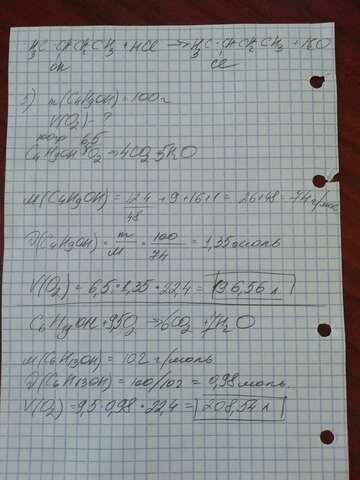 H3C-CHCH2CH3 + HCl → H3C-CHCH2CH3 + H2O
OH Cl
2) m(C4H9OH) = 100 г
V(O2) - ?
6,5
C4H9OH + O2 → 4CO2 + 5H2O
M(C4H9OH) = 12·4 + 9 + 16 + 1 = 26 + 48 = 74 г/моль
48
ν(C4H9OH) = m/M = 100/74 = 1,35 моль
V(O2) = 6,5 · 1,35 · 22,4 = 196,56 л
C6H13OH + 9,5O2 → 6CO2 + 7H2O
M(C6H13OH) = 102 г/моль
ν(C6H13OH) = 100/102 = 0,98 моль
V(O2) = 9,5 · 0,98 · 22,4 = 208,54 л